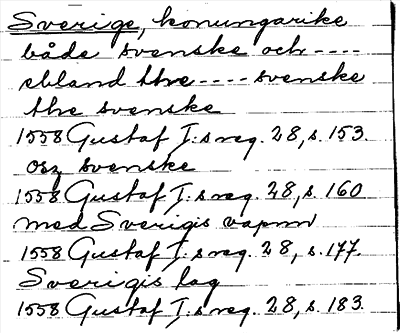 Sverige, konungarike
både svenske och ----
ebland thre ---- svenske
the svenske
1558 Gustaf I:s reg. 28, s. 153.
osz svenske
1558 Gustaf I:s reg. 28, s. 160
med Sverigis vapnn
1558 Gustaf I:s reg. 28, s. 177.
Sverigis lag
1558 Gustaf I:s reg. 28, s. 183.